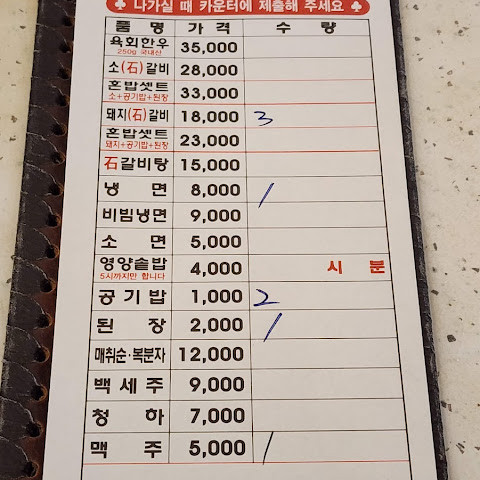 ♣ 나가실 때 카운터에 제출해 주세요 ♣
품 명 가 격 수 량
육회한우 35,000
250g 국내산
소(石)갈비 28,000
혼밥셋트 33,000
소+공기밥+된장
돼지(石)갈비 18,000 3
혼밥셋트 23,000
돼지+공기밥+된장
石갈비탕 15,000
냉 면 8,000 1
비빔냉면 9,000
소 면 5,000
영양솥밥 4,000 시 분
5시까지만 합니다
공기밥 1,000 2
된 장 2,000 1
매취순·복분자 12,000
백세주 9,000
청 하 7,000
맥 주 5,000 1